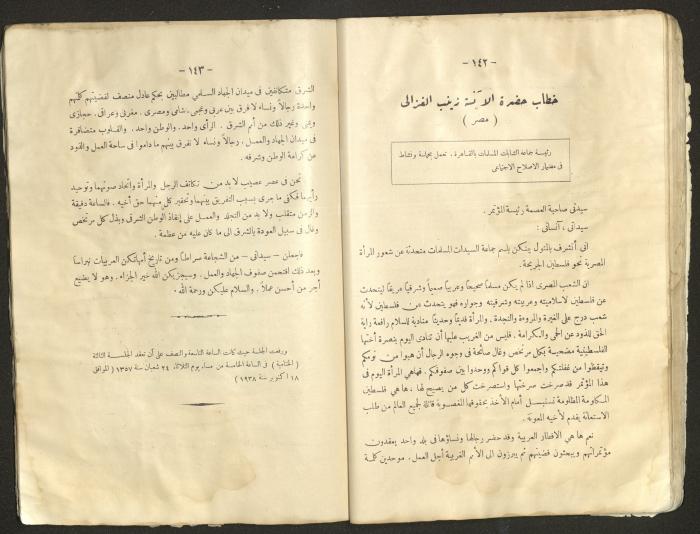 — ١٤٢ —
خطاب حضرة الآنسة زينب الغزالى
( مصر )
رئيسة جماعة الشابات المسلمات بالقاهرة . تعمل بحماسة ونشاط
فى مضمار الاصلاح الاجتماعى
سيدتى صاحبة العصمة رئيسة المؤتمر .
سيداتى ، آنساتى :
انى أتشرف بالمثول بينكن باسم جماعة السيدات المسلمات متحدثة عن شعور المرأة
المصرية نحو فلسطين الجريحة .
ان الشعب المصرى اذا لم يكن مسلماً صحيحاً وعربياً صميماً وشرقياً عريقاً ليتحدث
عن فلسطين لاسلاميته وعربيته وشرقيته وجواره فهو يتحدث عن فلسطين لأنه
شعب درج على الغيرة والمروءة والنجدة . والمرأة قديماً وحديثاً منادية للسلام رافعة راية
الحق للذود عن الحمى والكرامة . فليس من الغريب عليها أن تنادى اليوم بنصرة أختها
الفلسطينية مضحية بكل مرتخص وغال صائحة فى وجوه الرجال أن هبوا من نومكم
وتيقظوا من غفلتكم واجمعوا كل قواكم ووحدوا بين صفوفكم . فهاهى المرأة اليوم فى
هذا المؤتمر قد صرخت صرختها واستصرخت كل من يصيح لها ، ها هى فلسطين
المكلومة المظلومة تستبسل أمام الأخذ بحقوقها المغصوبة قائلة لجميع العالم من طلب
الاستعانة يقدم لأخيه المعونة .
نعم ها هى الاقطار العربية وقد حضر رجالها ونساؤها فى بلد واحد يعقدون
مؤتمراتهم ويبحثون قضيتهم ثم يبرزون الى الأمم الغربية أجل العمل . موحدين كلمة
— ١٤٣ —
الشرق متكاتفين فى ميدان الجهاد السلمى مطالبين بحكم عادل منصف لقضيتهم كلهم
واحدة رجالاً ونساء لا فرق بين عربى وعجمى ، شامى ومصرى . مغربى وعراقى . حجازى
ويمنى وغير ذلك من أمم الشرق . الرأى واحد . والوطن واحد . والقلوب متضافرة
فى ميدان الجهاد والعمل . رجالاً ونساء لا نفرق بينهم ما داموا فى ساحة العمل والذود
عن كرامة الوطن وشرفه .
نحن فى عصر عصيب لا بد من تكاتف الرجل والمرأة واتحاد صوتهما وتوحيد
رأيهما فكفى ما جرى بسبب التفريق بينهما وتحقير كل منهما حق أخيه . فالساعة دقيقة
والزمن متقلب ولا بد من التجلد والعمل على إنقاذ الوطن الشرقى وبذل كل مرتخص
وغال فى سبيل العودة بالشرق الى ما كان عليه من عظمة .
فاجعلن — سيداتى — من الشجاعة صراطاً ومن تاريخ أمهاتكن العربيات نبراساً
وبعد ذلك اقتحمن صفوف الجهاد والعمل . وسيجزيكن الله خير الجزاء . وهو لا يضيع
أجر من أحسن عملاً . والسلام عليكن ورحمة الله .
ورفعت الجلسة حيث كانت الساعة التاسعة والنصف على أن تعقد الجلسة الثالثة
( الختامية ) فى الساعة الخامسة من مساء يوم الثلاثاء ٢٤ شعبان سنة ١٣٥٧ ( الموافق
١٨ اكتوبر سنة ١٩٣٨ )